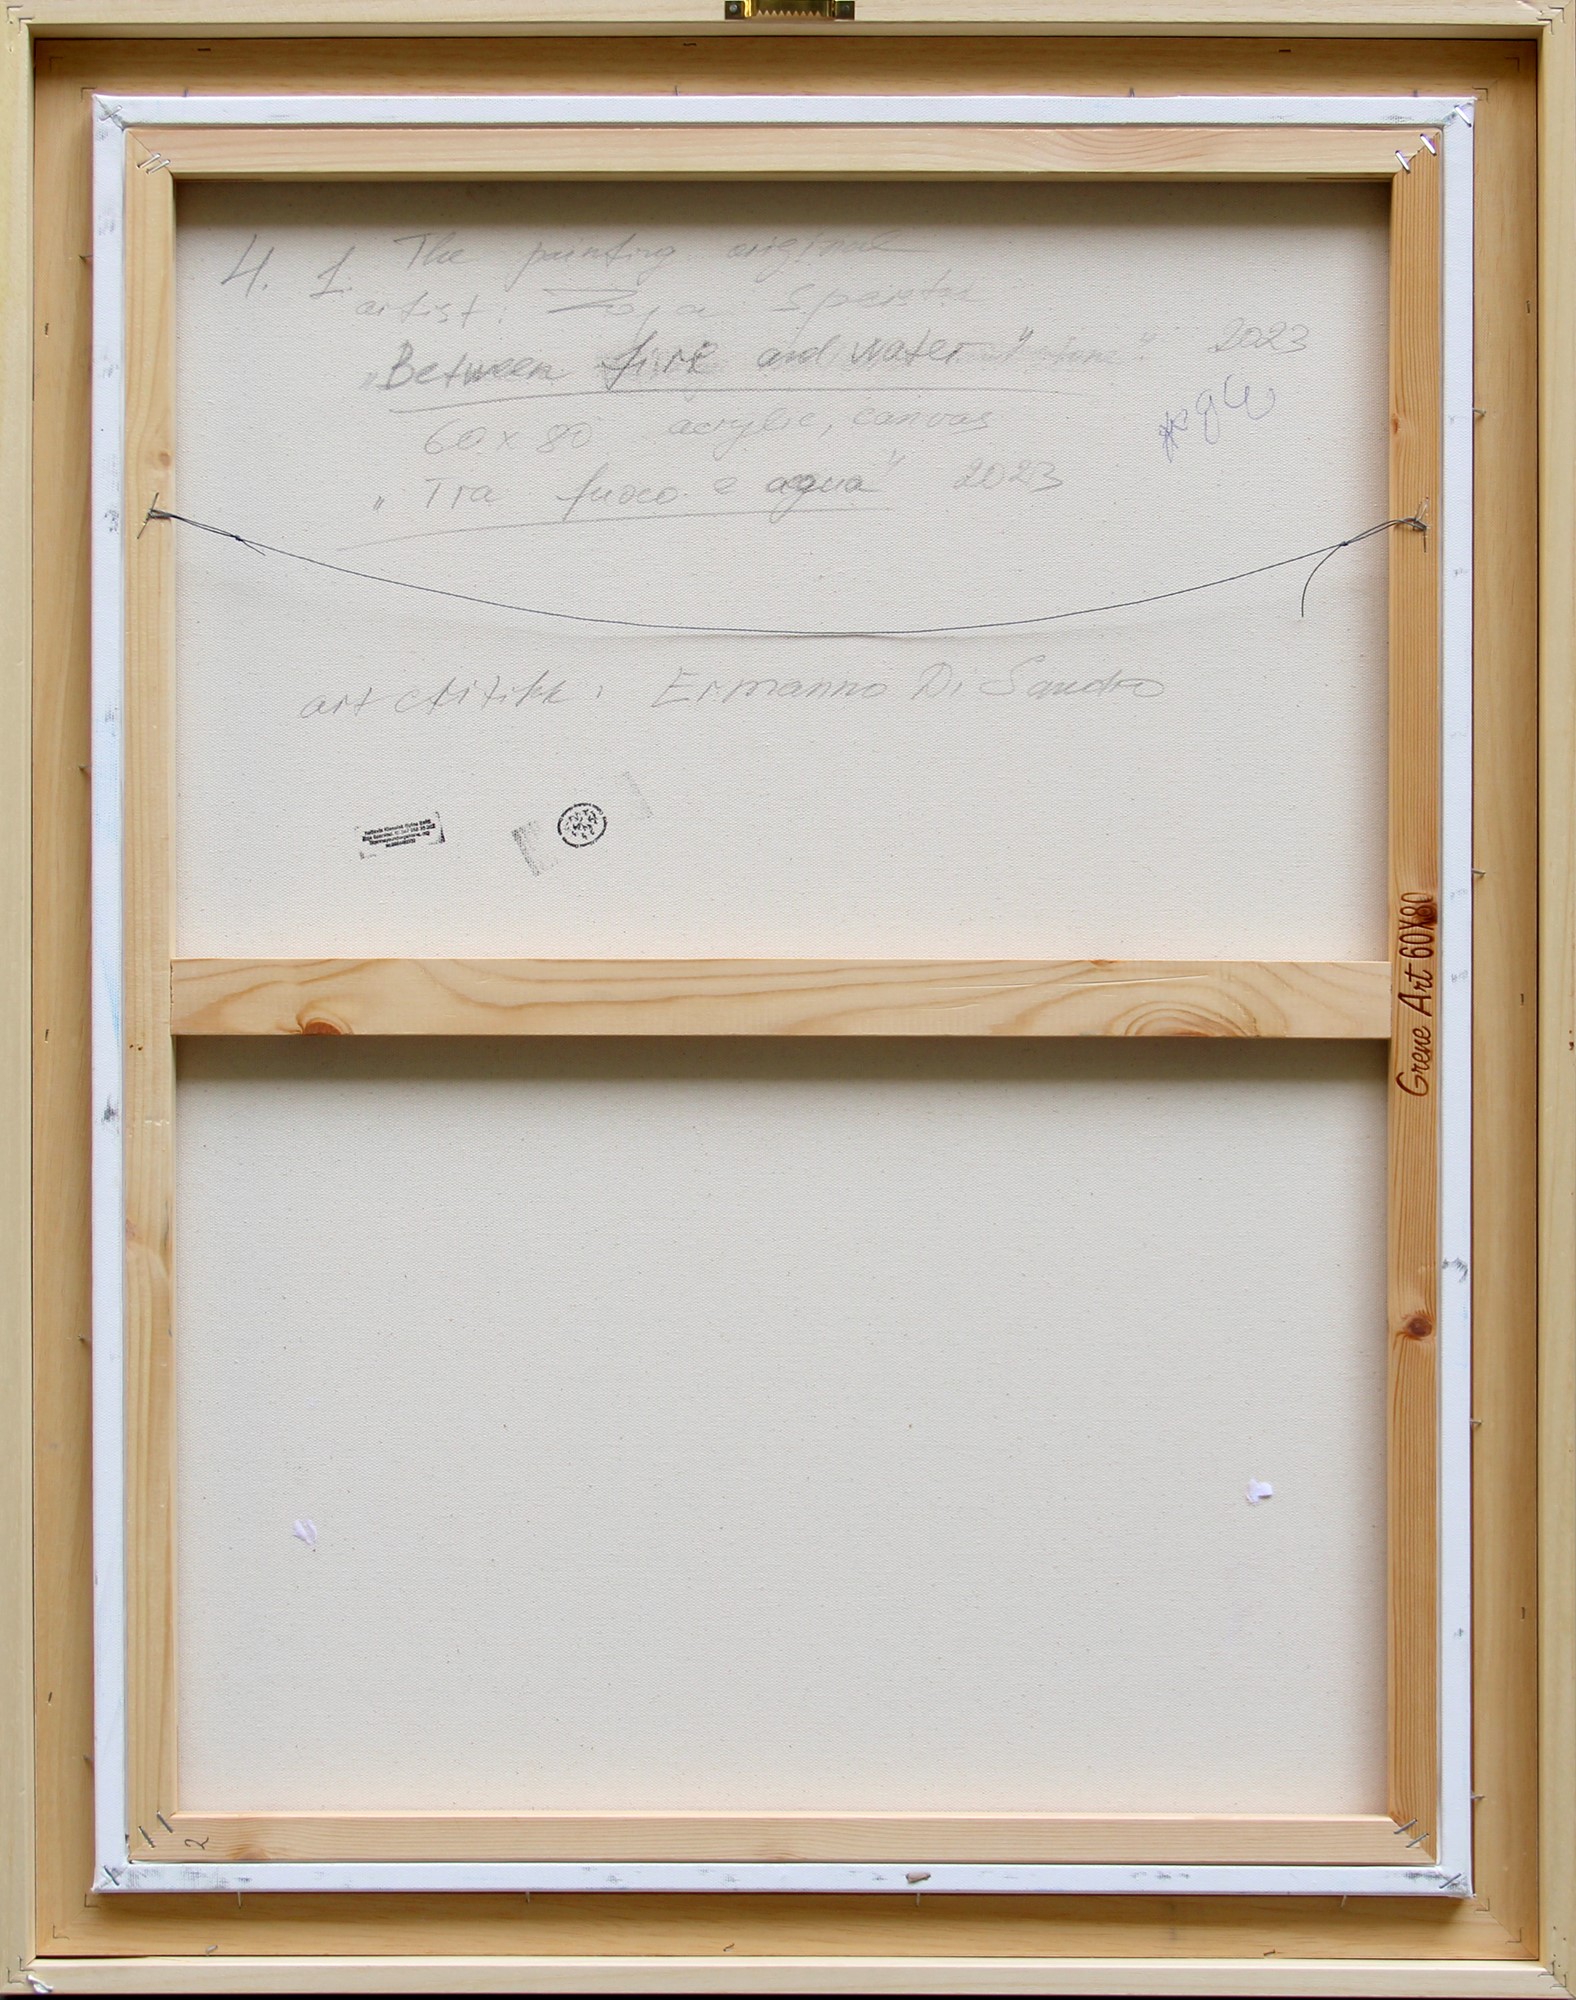 4. 1. The painting original
artist: Zoja Sperstad
„Between fire and water" 2023
60 x 80 acrylic, canvas
„Tra fuoco e aqua" 2023
art critikk: Ermanno Di Sandro
Grene Art 60X80
2